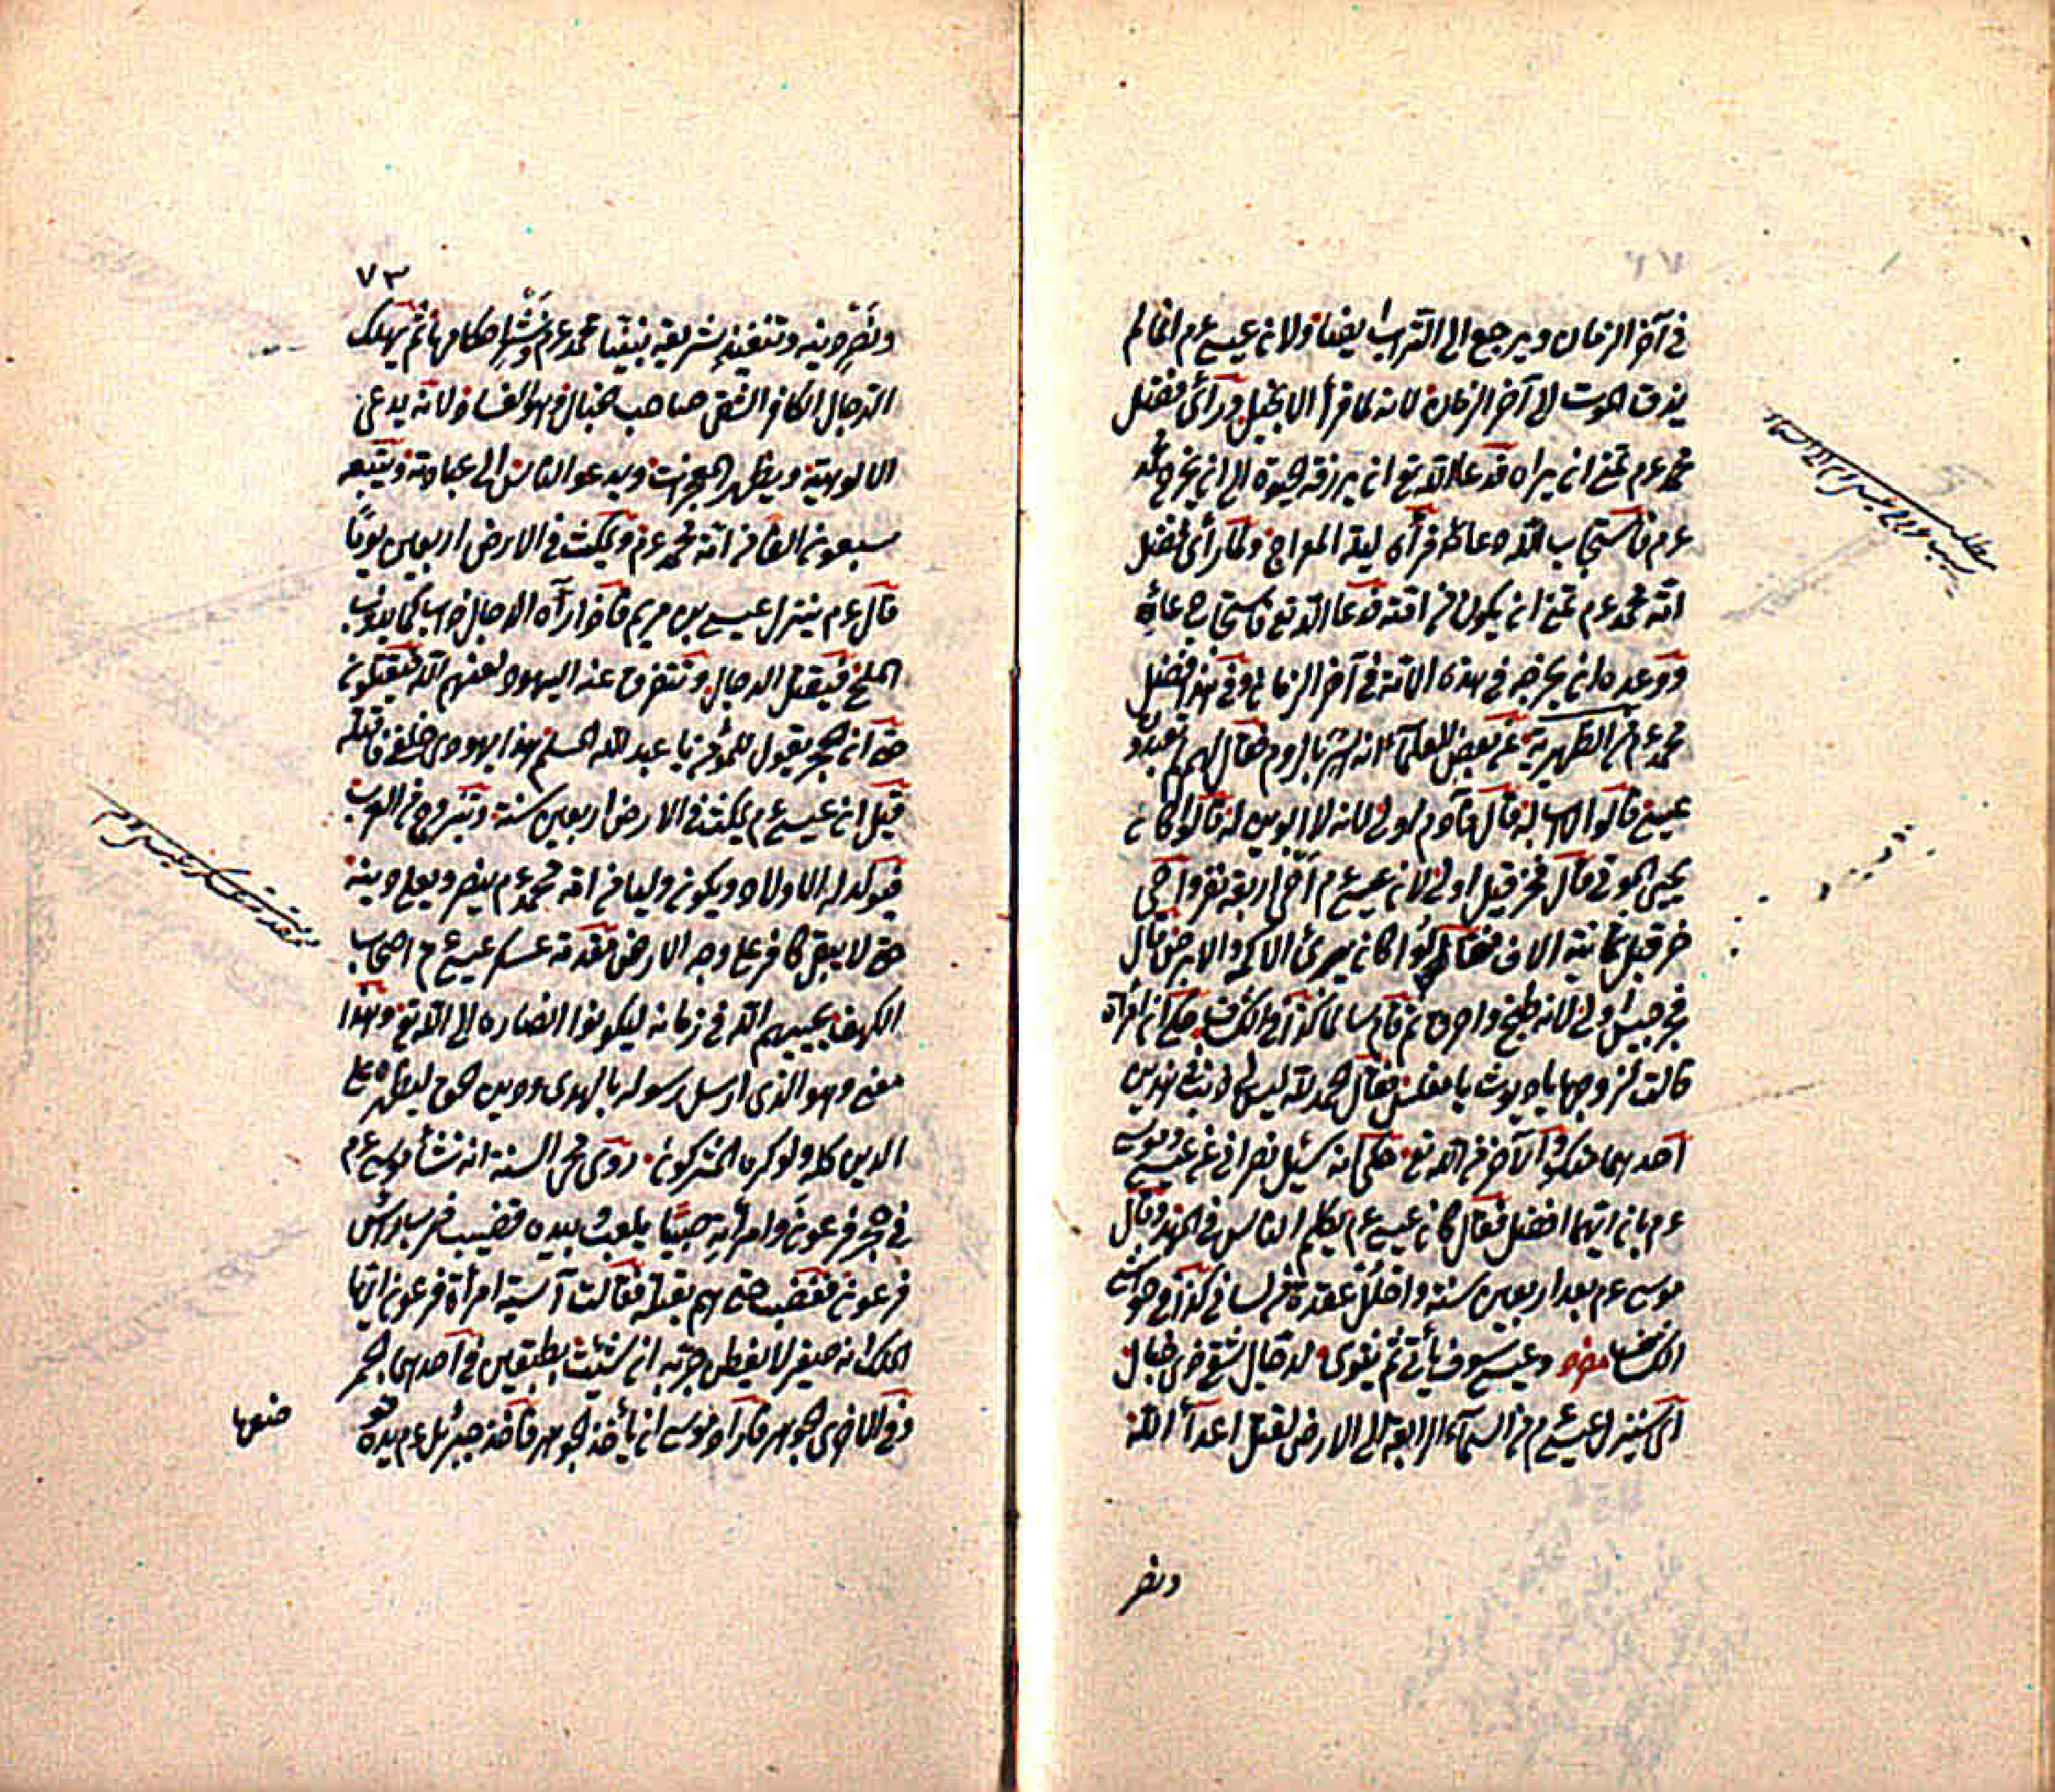 في آخر الزمان ويرجع الى التراب ايضا ولان عيسى عم انما لم
يذق الموت الى آخر الزمان لانه لما قرأ الانجيل ورأى فضل
محمد عم تمنى ان يراه فدعا الله تع ان يرزقه الحيوة الى ان يخرج محمد
عم فاستجاب الله دعائه فرأه ليلة المعراج ولما رأى فضل
امة محمد عم تمنى ان يكون من امته فدعا الله تع فاستجاب دعائه
ووعده ان يخرجه في هذه الامة في آخر الزمان وفي هذا فضل
محمد عم من الظهيرية عن بعض العلماء انه اسر بالروم فقال لهم لم تعبدون
عيسى قالوا لا اب له قال فآدم اولى لانه لا ابوين له قالوا كان
يحيى الموتى قال فحزقيل اولى لان عيسى عم احيى اربعة نفر واحيى
حزقيل ثمانية الاف فقالوا كان يبرئ الاكمه والابرص قال
فجرجيس اولى لانه طبخ واحرق ثم قام سالما كذا في الكشاف حكى ان امرأة
قالت لزوجها يا ديوث يا مفلس فقال الحمد لله ليس لي ذنب في هذين
احدهما منك والآخر من الله تع حكى انه سئل نصراني عن عيسى وموسى
عم بان ايهما افضل فقال كان عيسى عم يكلم الناس في المهد وقال
موسى عم بعد اربعين سنة واحلل عقدة من لساني كذا في حواشي
الكشاف وعيسى سوف يأتي ثم يتوى لدجال شقي ذي خبال
اى سينزل عيسى عم من السماء الرابعة الى الارض لقتل اعداء الله
ونصر
٧٣
ونصر دينه وتنفيذ شريعة نبينا محمد عم ونشر احكامها ثم يهلك
الدجال الكافر الشقي صاحب الخبال وهو الفساد لانه يدعى
الالوهية ويظهر المعجزات ويدعو الناس الى عبادته ويتبعه
سبعون الفا من امة محمد عم ويمكث في الارض اربعين يوما
قال عم ينزل عيسى بن مريم فاذا رآه الدجال ذاب كما يذوب
الملح فيقتل الدجال وتتفرق عنه اليهود لعنهم الله فيقتلون
حتى ان الحجر يقول للمؤمن يا عبد الله المسلم هذا يهودى خلفي فاقتله
قيل ان عيسى عم يمكث في الارض اربعين سنة ويتزوج من العرب
فيولد له الاولاد ويكون وليا من امة محمد عم ينصر ويعلى دينه
حتى لا يبقى كافر على وجه الارض مقدمة عسكر عيسى عم اصحاب
الكهف يحييهم الله في زمانه ليكونوا انصاره الى الله تع وهذا
معنى وهو الذى ارسل رسوله بالهدى ودين الحق ليظهره على
الدين كله ولو كره المشركون روى محى السنة انه نشأ موسى عم
في حجر فرعون وامرأته صبيا يلعب وبيده قضيب ضرب رأس
فرعون فغضب حتى هم بقتله فقالت آسية امرأة فرعون ايها
الملك انه صغير لا يغضبن جربه ان شئت بطبقين في احدهما الجمر
وفي الاخرى الجوهر فاراد موسى ان يأخذ الجوهر فاخذ جبرئيل عم يده
مقدمة عسكر عيسى عم